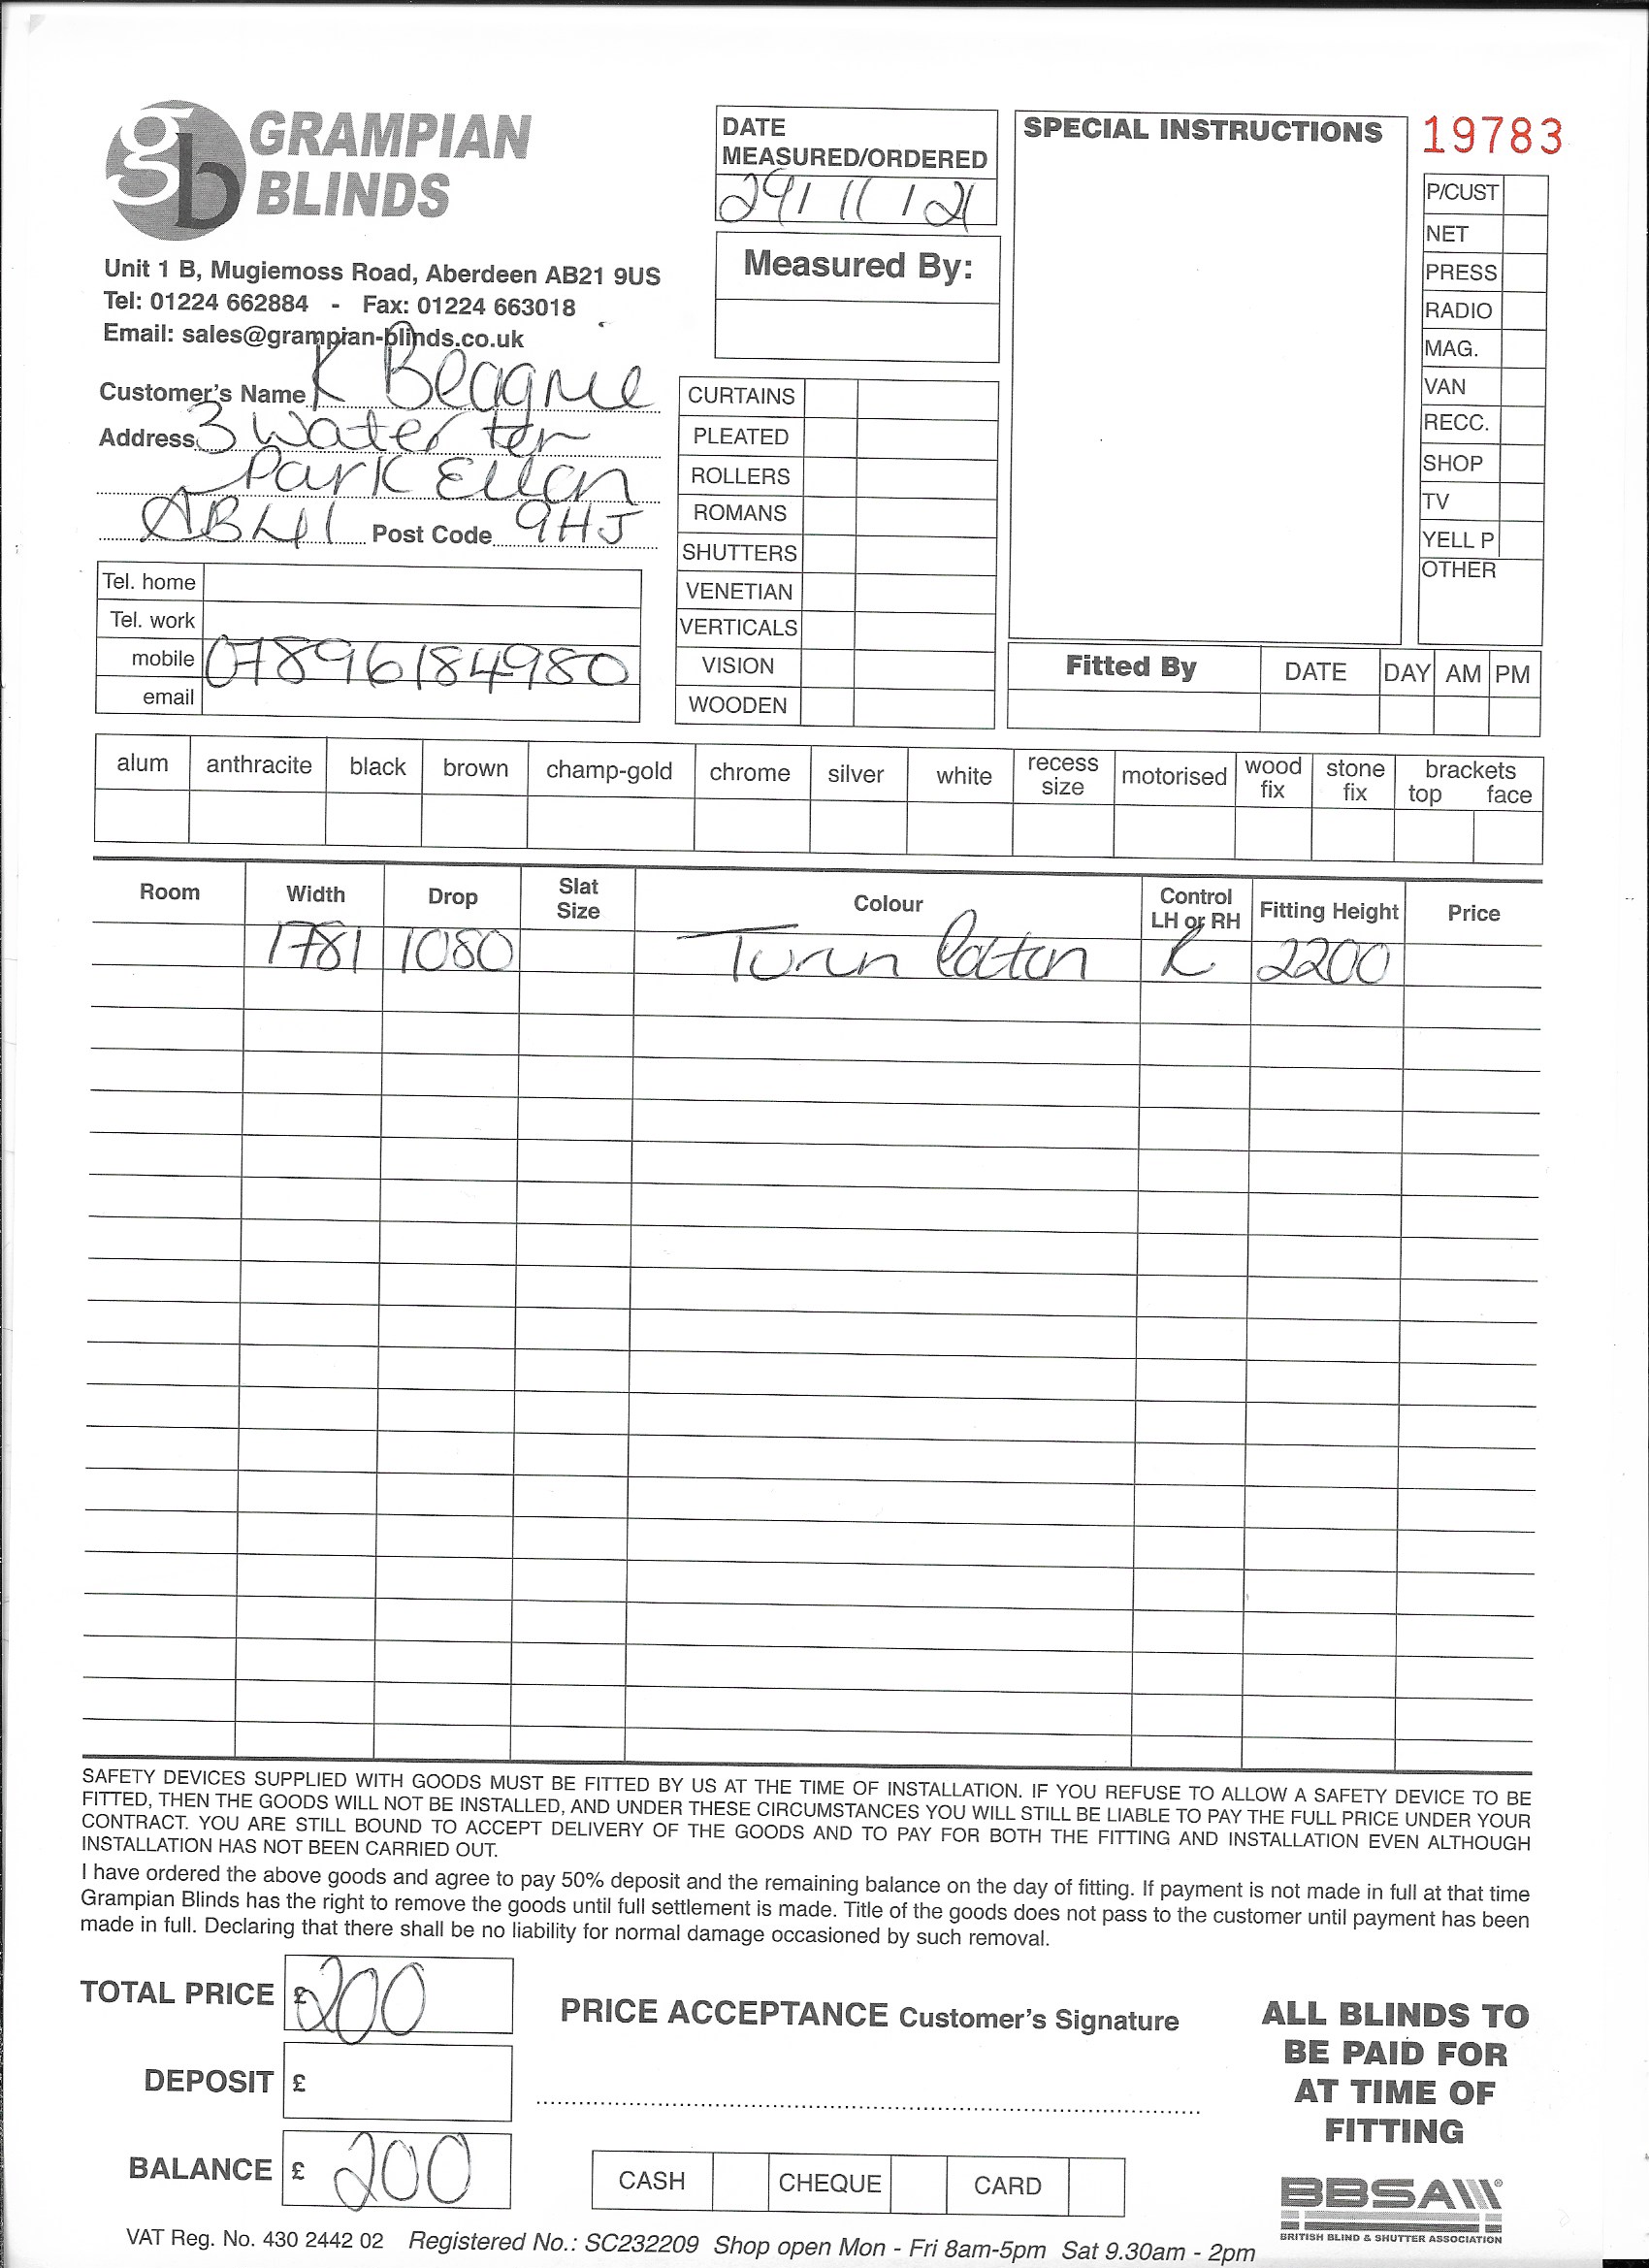 gb GRAMPIAN
BLINDS
Unit 1 B, Mugiemoss Road, Aberdeen AB21 9US
Tel: 01224 662884 - Fax: 01224 663018
Email: sales@grampian-blinds.co.uk
Customer's Name K Beagrie
Address 3 Water ton
Park Ellon
AB41 Post Code 9HJ
Tel. home
Tel. work
mobile 07896184980
email
DATE
MEASURED/ORDERED
29/11/21
Measured By:
CURTAINS
PLEATED
ROLLERS
ROMANS
SHUTTERS
VENETIAN
VERTICALS
VISION
WOODEN
SPECIAL INSTRUCTIONS
19783
P/CUST
NET
PRESS
RADIO
MAG.
VAN
RECC.
SHOP
TV
YELL P
OTHER
Fitted By DATE DAY AM PM
alum anthracite black brown champ-gold chrome silver white recess size motorised wood fix stone fix brackets top face
Room Width Drop Slat Size Colour Control LH or RH Fitting Height Price
1781 1080 Turin R 2200
SAFETY DEVICES SUPPLIED WITH GOODS MUST BE FITTED BY US AT THE TIME OF INSTALLATION. IF YOU REFUSE TO ALLOW A SAFETY DEVICE TO BE
FITTED, THEN THE GOODS WILL NOT BE INSTALLED, AND UNDER THESE CIRCUMSTANCES YOU WILL STILL BE LIABLE TO PAY THE FULL PRICE UNDER YOUR
CONTRACT. YOU ARE STILL BOUND TO ACCEPT DELIVERY OF THE GOODS AND TO PAY FOR BOTH THE FITTING AND INSTALLATION EVEN ALTHOUGH
INSTALLATION HAS NOT BEEN CARRIED OUT.
I have ordered the above goods and agree to pay 50% deposit and the remaining balance on the day of fitting. If payment is not made in full at that time
Grampian Blinds has the right to remove the goods until full settlement is made. Title of the goods does not pass to the customer until payment has been
made in full. Declaring that there shall be no liability for normal damage occasioned by such removal.
TOTAL PRICE £200
DEPOSIT £
BALANCE £ 200
PRICE ACCEPTANCE Customer's Signature
CASH CHEQUE CARD
ALL BLINDS TO
BE PAID FOR
AT TIME OF
FITTING
BBSA
BRITISH BLIND & SHUTTER ASSOCIATION
VAT Reg. No. 430 2442 02 Registered No.: SC232209 Shop open Mon - Fri 8am-5pm Sat 9.30am - 2pm